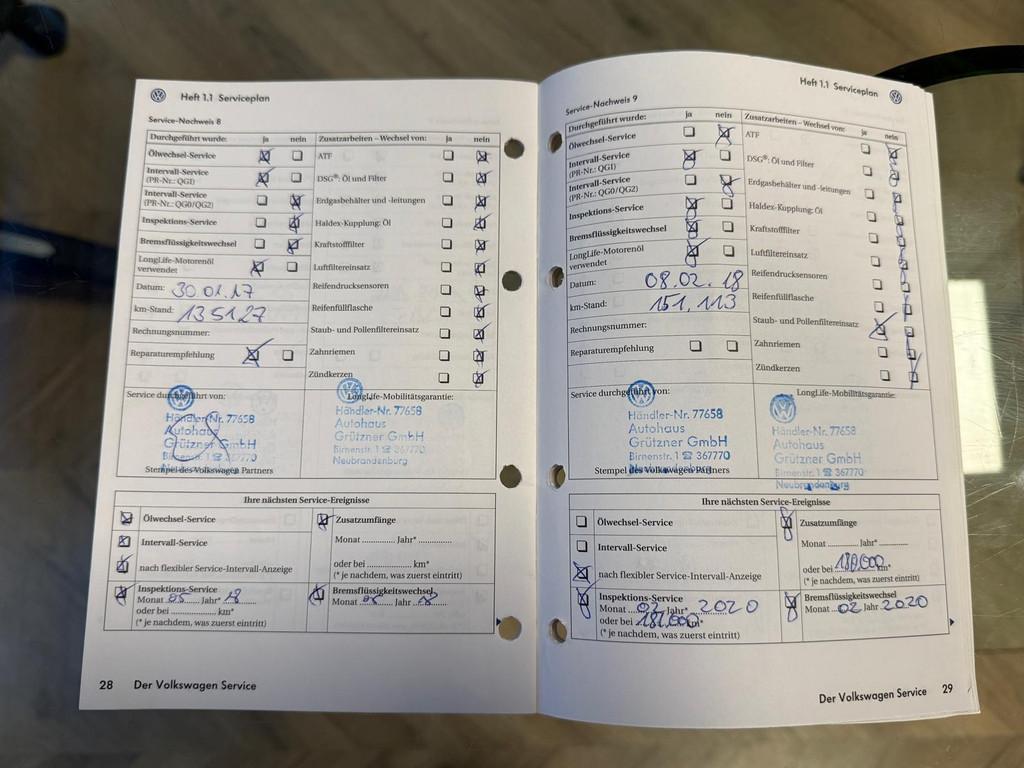 Heft 1.1 Serviceplan
Service-Nachweis 8
Durchgeführt wurde: ja nein
Ölwechsel-Service
Intervall-Service
(PR-Nr.: QGI)
Intervall-Service
(PR-Nr.: QG0/QG2)
Inspektions-Service
Bremsflüssigkeitswechsel
LongLife-Motorenöl
verwendet
Datum: 30.01.17
km-Stand: 135127
Rechnungsnummer:
Reparaturempfehlung
Zusatzarbeiten – Wechsel von: ja nein
ATF
DSG®: Öl und Filter
Erdgasbehälter und -leitungen
Haldex-Kupplung: Öl
Kraftstofffilter
Luftfiltereinsatz
Reifendrucksensoren
Reifenfüllflasche
Staub- und Pollenfiltereinsatz
Zahnriemen
Zündkerzen
Service durchgeführt von:
Händler-Nr. 77658
Autohaus
Grützner GmbH
Birnenstr. 1 ☎ 367770
Stempel des Volkswagen Partners
LongLife-Mobilitätsgarantie:
Händler-Nr. 77658
Autohaus
Grützner GmbH
Birnenstr. 1 ☎ 367770
Neubrandenburg
Ihre nächsten Service-Ereignisse
Ölwechsel-Service
Intervall-Service
nach flexibler Service-Intervall-Anzeige
Inspektions-Service
Monat 05 Jahr* 18
oder bei .............. km*
(* je nachdem, was zuerst eintritt)
Zusatzumfänge
Monat ............ Jahr* ............
oder bei .............. km*
(* je nachdem, was zuerst eintritt)
Bremsflüssigkeitswechsel
Monat 05 Jahr 18
28 Der Volkswagen Service
Heft 1.1 Serviceplan
Service-Nachweis 9
Durchgeführt wurde: ja nein
Ölwechsel-Service
Intervall-Service
(PR-Nr.: QGI)
Intervall-Service
(PR-Nr.: QG0/QG2)
Inspektions-Service
Bremsflüssigkeitswechsel
LongLife-Motorenöl
verwendet
Datum: 08.02.18
km-Stand: 151.113
Rechnungsnummer:
Reparaturempfehlung
Zusatzarbeiten – Wechsel von: ja nein
ATF
DSG®: Öl und Filter
Erdgasbehälter und -leitungen
Haldex-Kupplung: Öl
Kraftstofffilter
Luftfiltereinsatz
Reifendrucksensoren
Reifenfüllflasche
Staub- und Pollenfiltereinsatz
Zahnriemen
Zündkerzen
Service durchgeführt von:
Händler-Nr. 77658
Autohaus
Grützner GmbH
Birnenstr. 1 ☎ 367770
Stempel des Volkswagen Partners
LongLife-Mobilitätsgarantie:
Händler-Nr. 77658
Autohaus
Grützner GmbH
Birnenstr. 1 ☎ 367770
Neubrandenburg
Ihre nächsten Service-Ereignisse
Ölwechsel-Service
Intervall-Service
nach flexibler Service-Intervall-Anzeige
Inspektions-Service
Monat 02 Jahr* 2020
oder bei 181.000 km*
(* je nachdem, was zuerst eintritt)
Zusatzumfänge
Monat ............ Jahr* ............
oder bei 180.000 km*
(* je nachdem, was zuerst eintritt)
Bremsflüssigkeitswechsel
Monat 02 Jahr 2020
Der Volkswagen Service 29